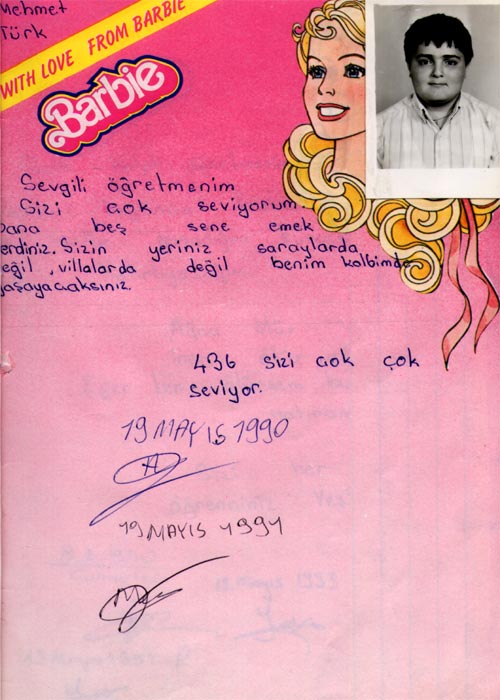 Mehmet
Türk
WITH LOVE FROM BARBIE
Barbie
Sevgili öğretmenim
Sizi çok seviyorum.
bana beş sene emek
verdiniz. Sizin yeriniz saraylarda
değil, villalarda değil benim kalbimde
yaşayacaksınız.
436 sizi çok çok
seviyor.
19 MAYIS 1990
19 MAYIS 1991
19 Mayıs 1993